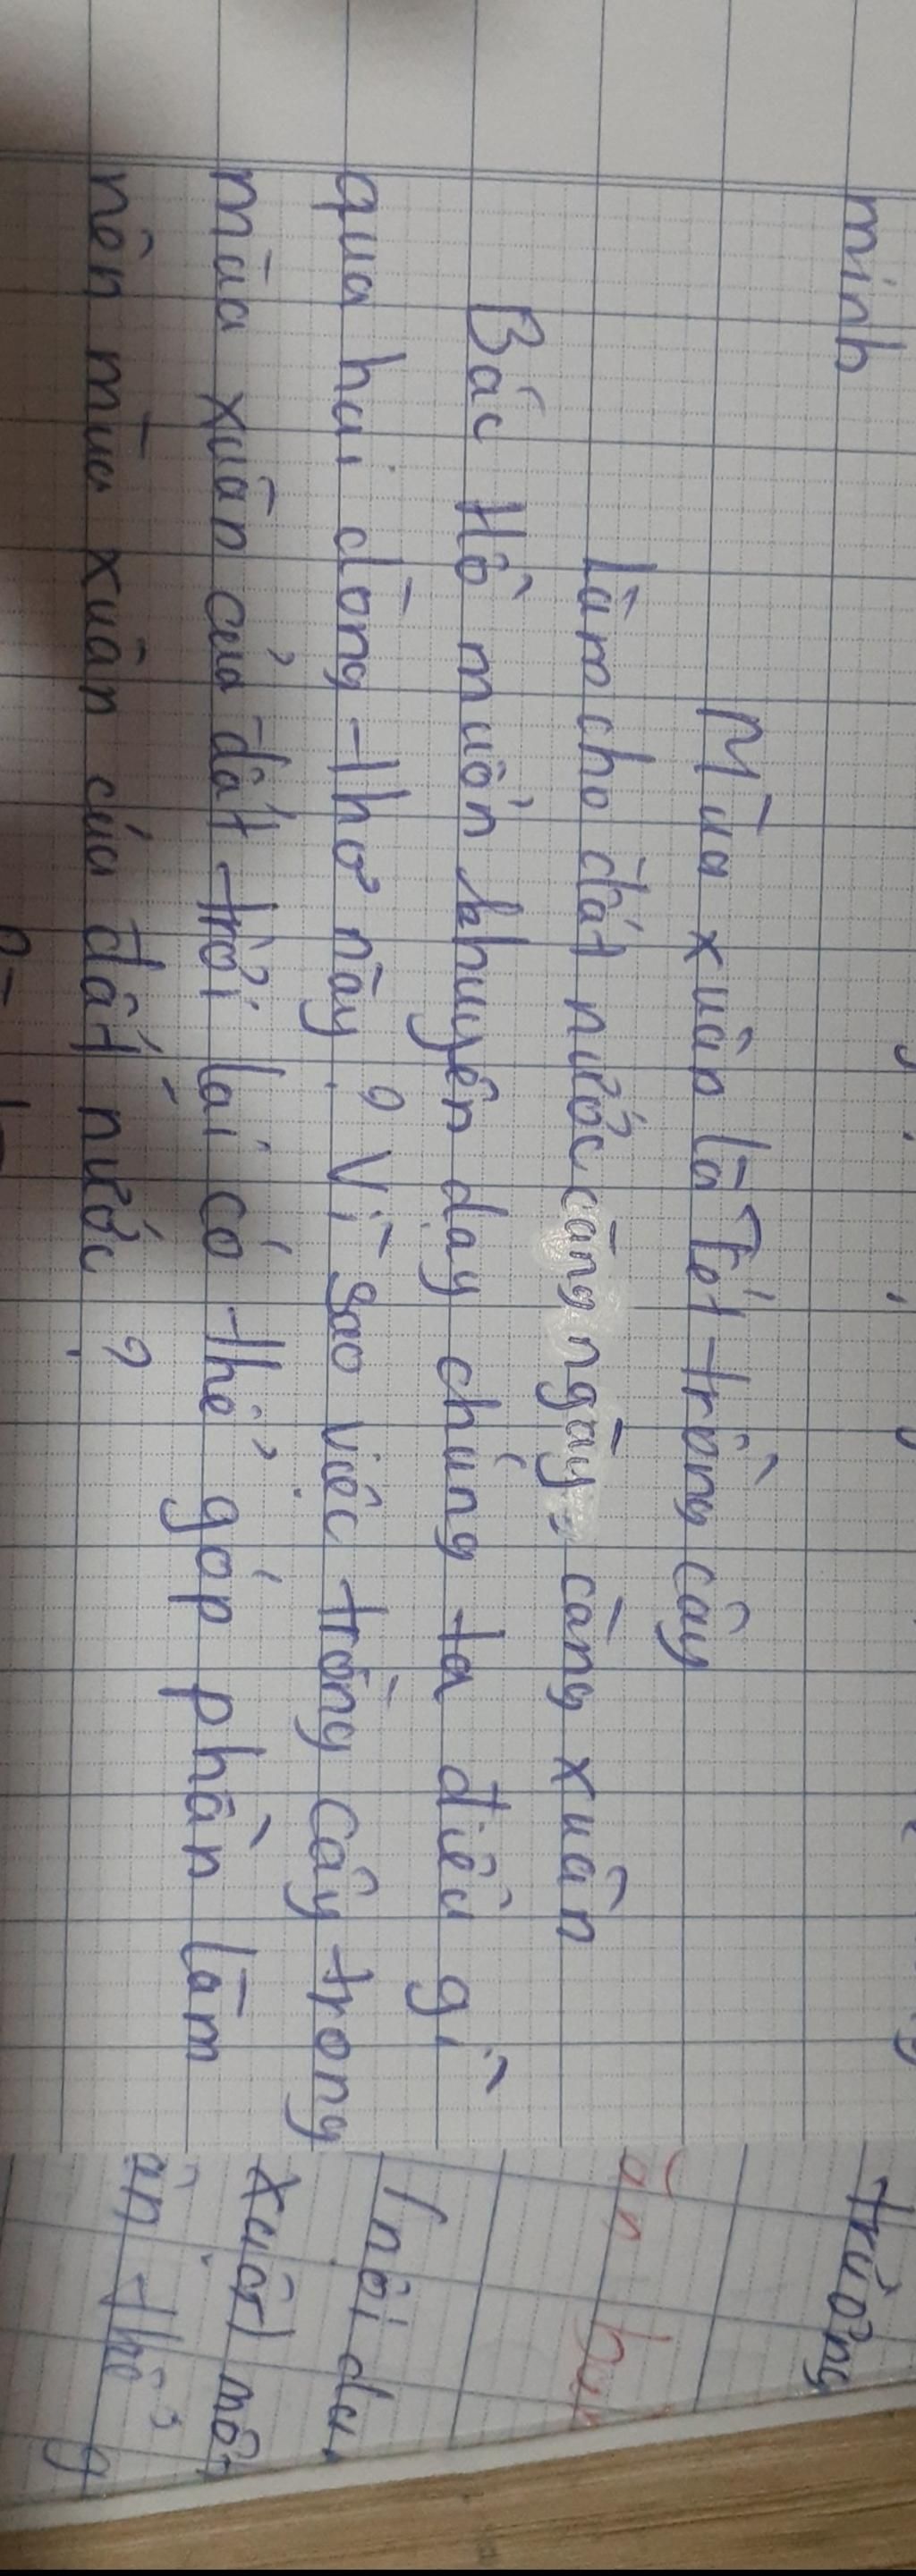 minh
Mùa xuân là Tết trồng cây
Làm cho đất nước càng ngày, càng xuân
Bác Hồ muốn khuyên dạy chúng ta điều gì
qua hai dòng thơ này? Vì sao việc trồng cây trong
mùa xuân của đất trời lại có thể góp phần làm
nên mùa xuân của đất nước?
trường
ăn
nội du
xuất một